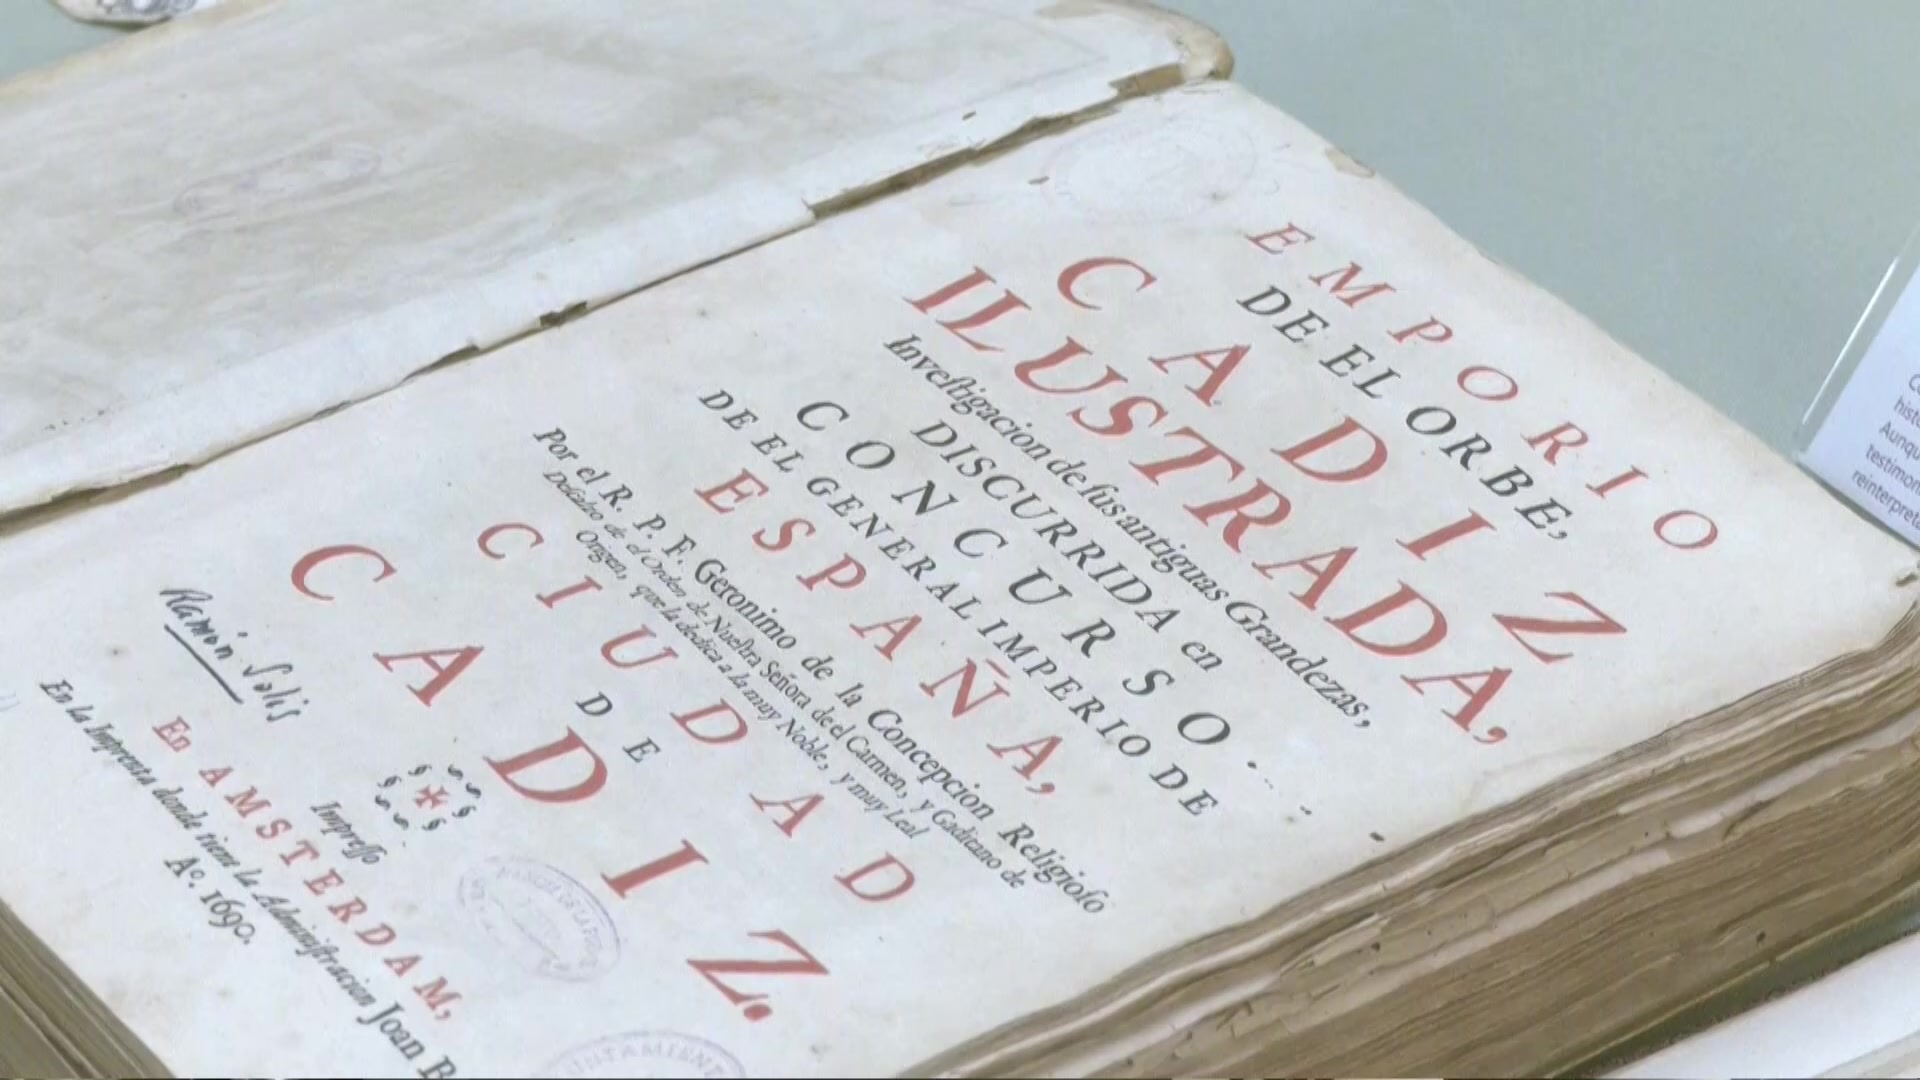 EMPORIO
DE EL ORBE,
CADIZ
ILUSTRADA,
Inveſtigacion de ſus antiguas Grandezas,
DISCURRIDA en
CONCURSO
DE EL GENERAL IMPERIO DE
ESPAÑA,
Por el R. P. F. Geronimo de la Concepcion Religioſo
Deſcalzo de el Orden de Nueſtra Señora de el Carmen, y Gaditano de
Origen, que la dedica a la muy Noble, y muy Leal
CIUDAD
DE
CADIZ.
Ramón Solis
Impreſſo
En AMSTERDAM,
En la Imprenta donde tiene la Adminiſtracion Joan B
Aº. 1690.
Aunqu